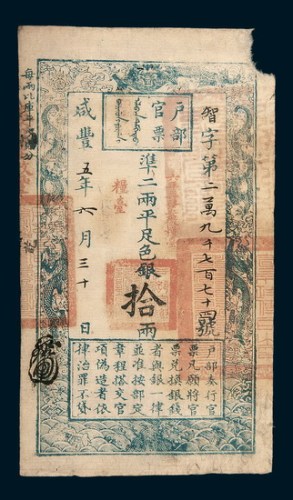 戶部
官票
智字第二萬九千七百七十四號
準二兩平足色銀拾兩
糧臺
咸豐五年六月三十日
戶部奏行官
票凡願將官
票兌換銀錢
者與銀一律
並准按部定
章程搭交官
項偽造者依
律治罪不貸
每兩比庫平
分